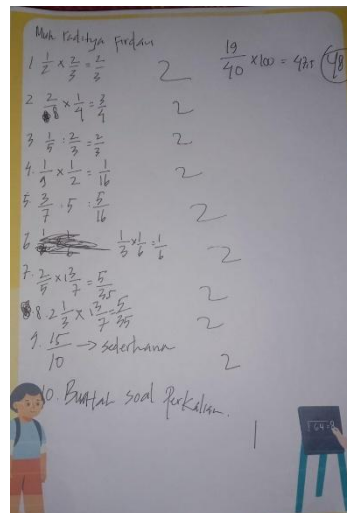 Muh raditya Firdaus
19/40 x 100 = 47,5 48
1 1/2 x 2/3 = 2/3 2
2 2/8 x 1/4 = 3/4 2
3 1/5 : 2/3 = 2/7 2
4. 1/9 x 1/2 = 1/16 2
5. 3/7 : 5 : 5/16 2
6. 1/3 x 1/6 = 1/6 2
7. 2/5 x 1 3/7 = 5/35 2
8. 2 1/3 x 1 3/7 = 5/35 2
9. 15/10 → sederhana 2
10. Buatlah soal Perkalian. 1